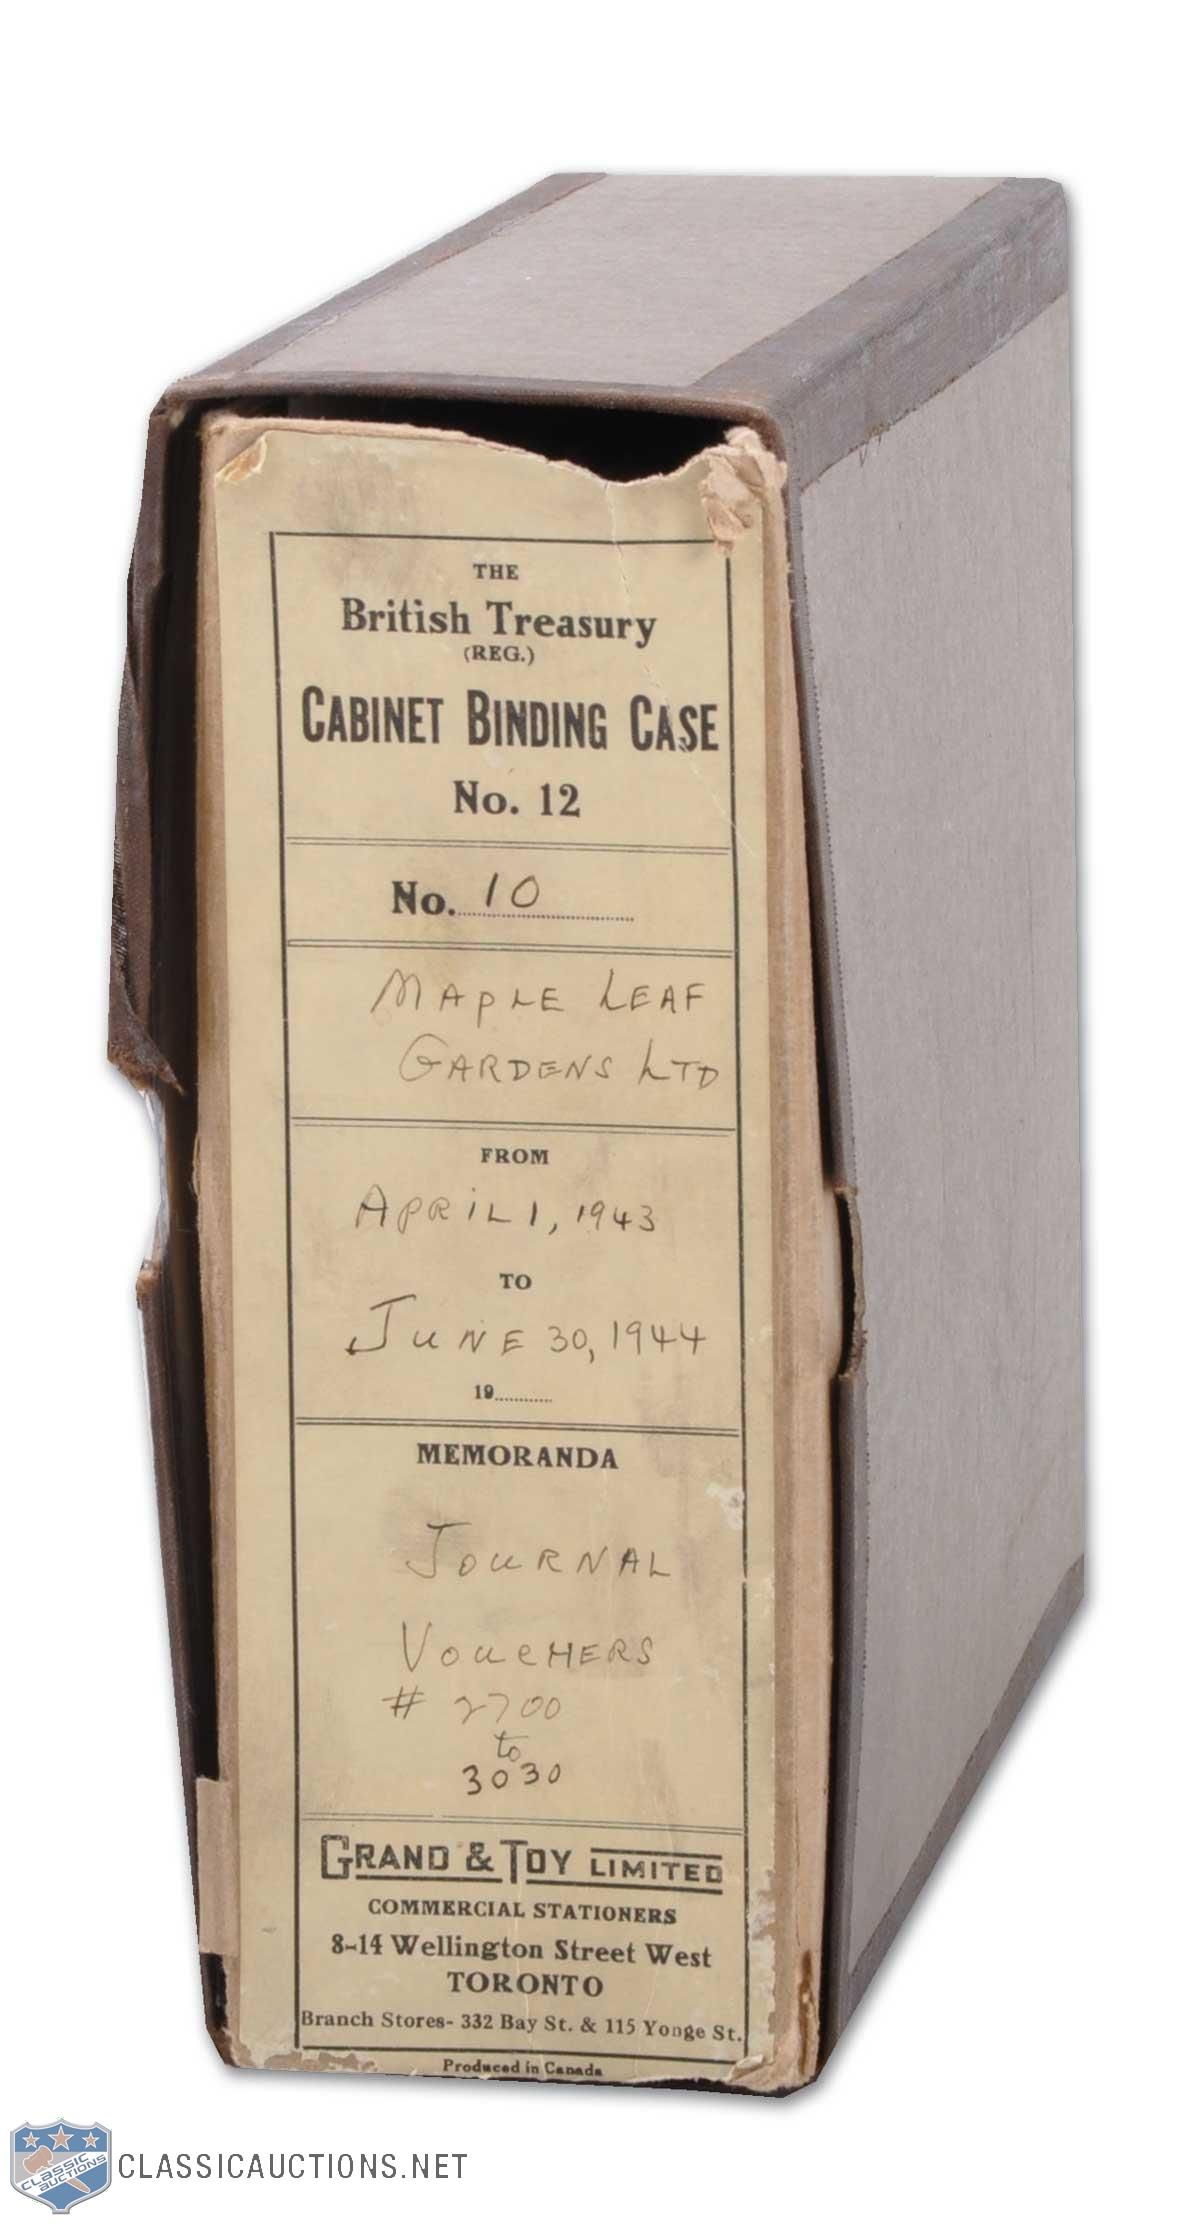 THE
British Treasury
(REG.)
CABINET BINDING CASE
No. 12
No. 10
MAPLE LEAF
GARDENS LTD
FROM
APRIL 1, 1943
TO
JUNE 30, 1944
19
MEMORANDA
JOURNAL
VOUCHERS
# 2700
to
3030
GRAND & TOY LIMITED
COMMERCIAL STATIONERS
8-14 Wellington Street West
TORONTO
Branch Stores- 332 Bay St. & 115 Yonge St.
Produced in Canada
CLASSIC
AUCTIONS
CLASSICAUCTIONS.NET